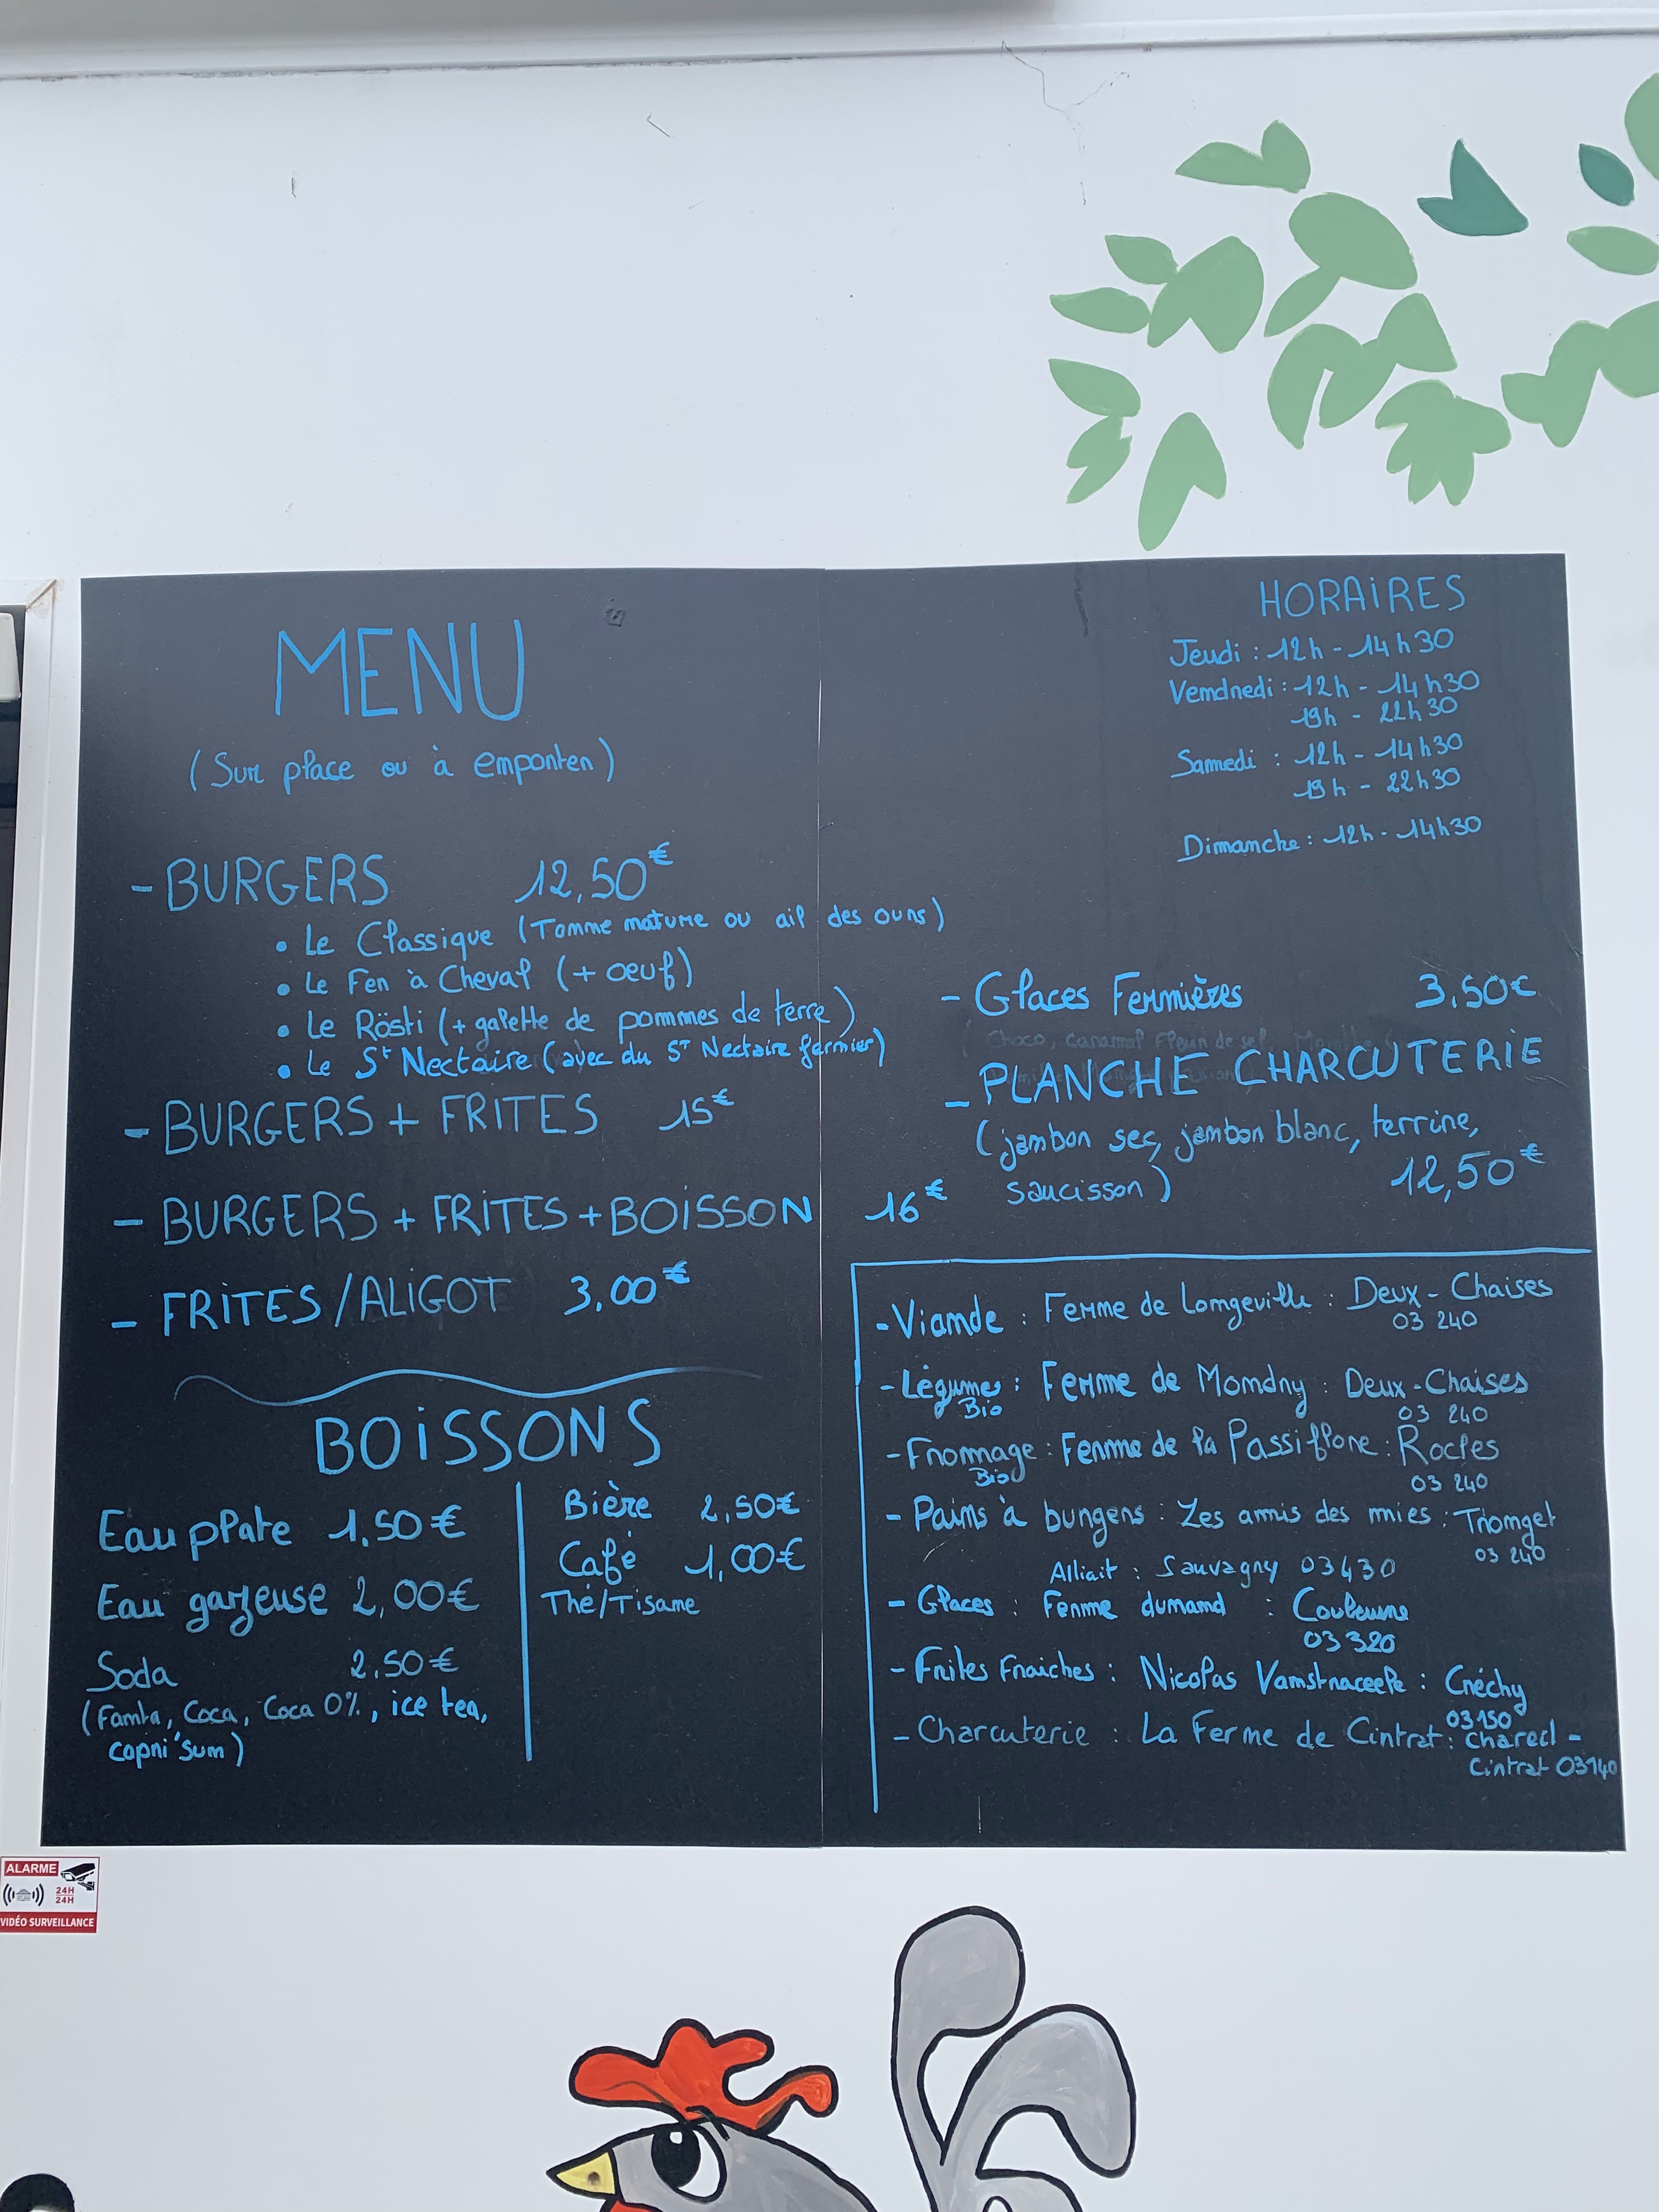 MENU
(Sur place ou à emporter)
- BURGERS 12,50€
• Le Classique (Tomme nature ou ail des ours)
• Le Fer à Cheval (+ oeuf)
• Le Rösti (+ galette de pommes de terre)
• Le St Nectaire (avec du St Nectaire fermier)
- BURGERS + FRITES 15€
- BURGERS + FRITES + BOISSON 16€
- FRITES/ALIGOT 3,00€
BOISSONS
Eau plate 1,50€
Eau gazeuse 2,00€
Soda 2,50€
(Fanta, Coca, Coca 0%, ice tea,
capri'sun)
Bière 2,50€
Café 1,00€
Thé/Tisane
HORAIRES
Jeudi : 12h - 14h30
Vendredi : 12h - 14h30
19h - 22h30
Samedi : 12h - 14h30
19h - 22h30
Dimanche : 12h - 14h30
- Glaces Fermières 3,50€
(Choco, caramel Fleur de sel,
- PLANCHE CHARCUTERIE
(jambon sec, jambon blanc, terrine,
saucisson) 12,50€
- Viande : Ferme de Longeville : Deux-Chaises
03 240
- Légumes : Ferme de Mondry : Deux-Chaises
Bio 03 240
- Fromage : Ferme de la Passiflore : Rocles
Bio 03 240
- Pains à burgers : Les amis des mies : Tronget
03 240
Alliait : Sauvagny 03430
- Glaces : Ferme durand : Couleuvre
03 320
- Frites Fraiches : Nicolas Vanstraceele : Créchy
03150
- Charcuterie : La Ferme de Cintrat : Chareil-
Cintrat 03140
ALARME
24H
24H
VIDÉO SURVEILLANCE